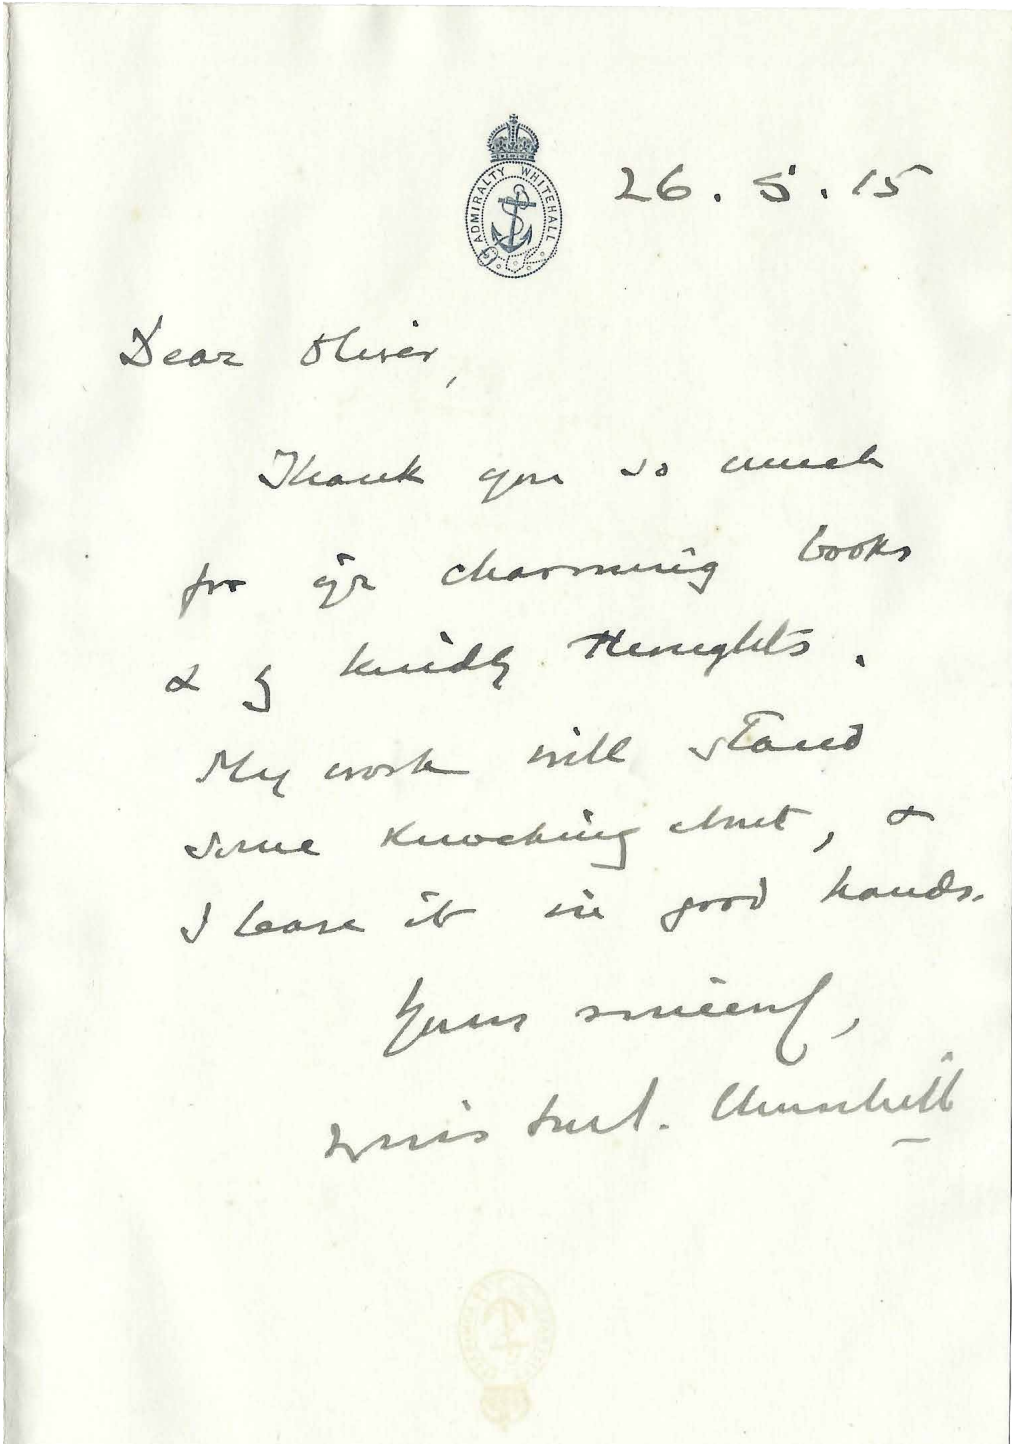 ADMIRALTY WHITEHALL
26.5.15
Dear Oliver,
Thank you so much
for yr charming books
& yr kindly thoughts.
My work will stand
some knocking about, &
I leave it in good hands.
Yours sincerely,
Winston S. Churchill